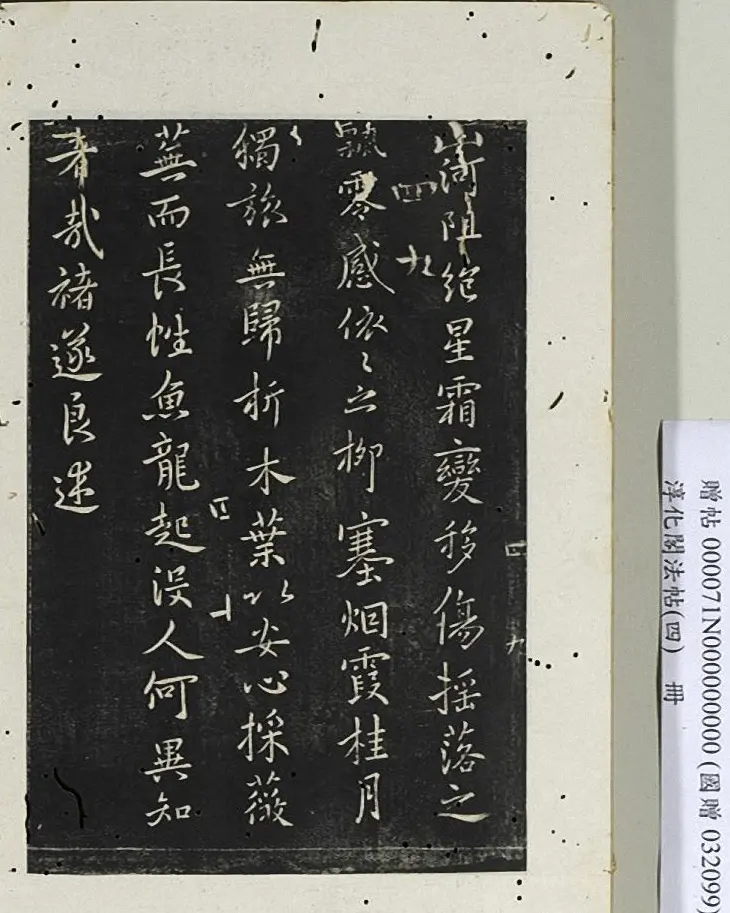 山河阻絶星霜變移傷摇落之
飄零感依〻之柳塞烟霞桂月
獨旅無歸折木葉以安心採薇
蕪而長性魚龍起没人何異知
者哉褚遂良述
四
九
四
九
四
十
贈帖 000071N000000000 (國贈 032099)
淳化閣法帖(四) 冊